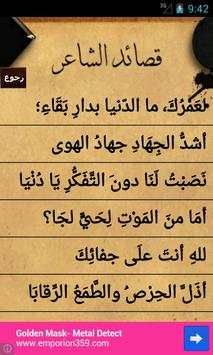 9:42
قصائد الشاعر
رجوع
لَعَمْرُكَ، ما الدّنيا بدارِ بَقَاءِ؛
أشدُّ الجِهَادِ جهادُ الهوى
نَصَبْتُ لَنَا دونَ التَّفَكُّرِ يَا دُنْيَا
أمَا مِنَ المَوْتِ لِحَيٍّ لجَا؟
للهِ أنتَ علَى جفائِكَ
أذَلَّ الحِرْصُ والطَّمَعُ الرِّقابَا
Golden Mask- Metal Detect
www.emporion359.com